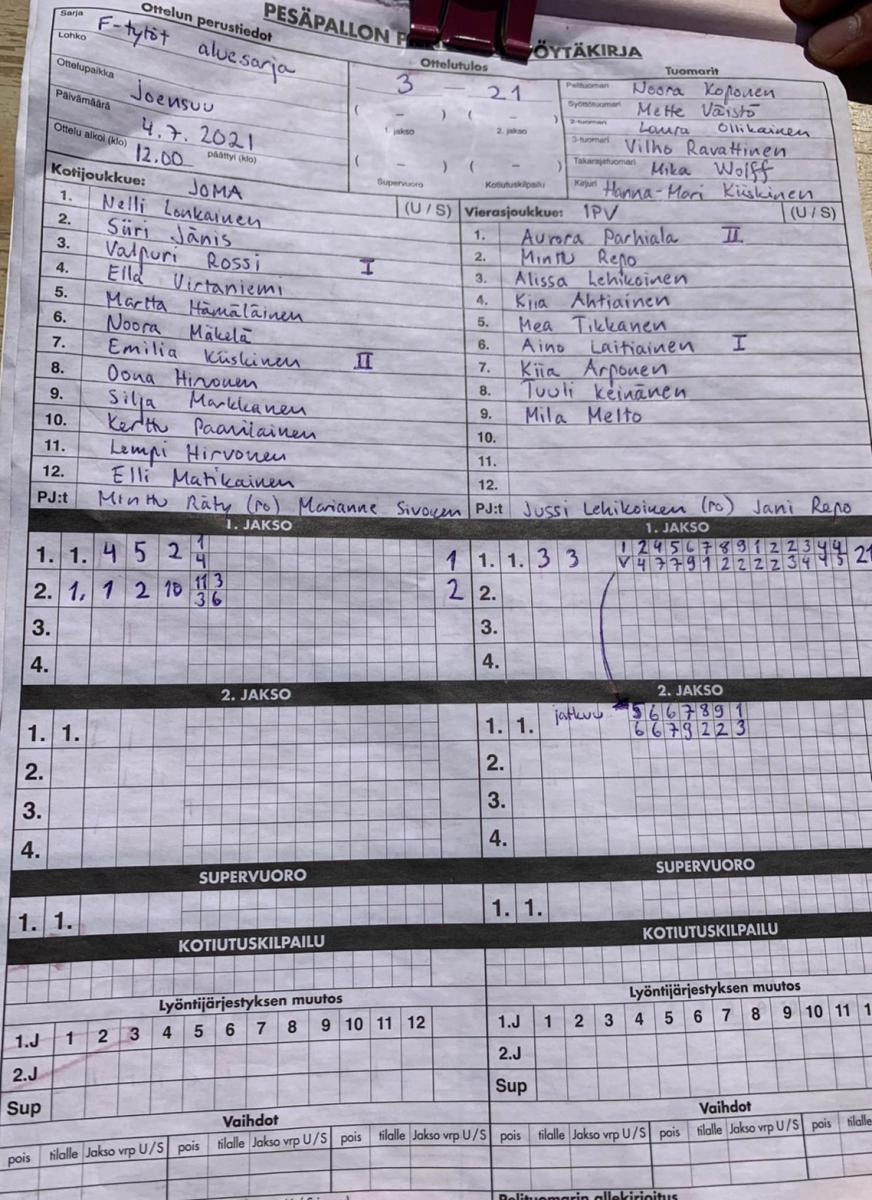 PESÄPALLON ÖYTÄKIRJA
Sarja
Ottelun perustiedot
F-tytöt aluesarja
Lohko
Ottelupaikka
Joensuu
Päivämäärä
4.7.2021
Ottelu alkoi (klo) 12.00 päättyi (klo)
Ottelutulos
3 – 21
( – ) ( – )
1. jakso 2. jakso
( – ) ( – )
Supervuoro Kotiutuskilpailu
Tuomarit
Pelituomari Noora Koponen
Syöttötuomari Mette Väistö
2-tuomari Laura Ollikainen
3-tuomari Vilho Ravattinen
Takarajatuomari Mika Wolff
Kirjuri Hanna-Mari Kiiskinen
Kotijoukkue: JOMA (U / S)
1. Nelli Lonkainen
2. Siiri Jänis
3. Valpuri Rossi I
4. Ella Virtaniemi
5. Martta Hämäläinen
6. Noora Mäkelä
7. Emilia Kiiskinen II
8. Oona Hirvonen
9. Silja Markkanen
10. Kerttu Paavilainen
11. Lempi Hirvonen
12. Elli Matikainen
PJ:t Minttu Räty (ro) Marianne Sivonen
Vierasjoukkue: IPV (U / S)
1. Aurora Parhiala II
2. Minttu Repo
3. Alissa Lehikoinen
4. Kiia Ahtiainen
5. Mea Tikkanen
6. Aino Laitiainen I
7. Kiia Arponen
8. Tuuli Keinänen
9. Mila Melto
10.
11.
12.
PJ:t Jussi Lehikoinen (ro) Jani Repo
1. JAKSO
1. 1. 4 5 2 1 1
4
2. 1, 1 2 10 11 3 2
3 6
3.
4.
1. JAKSO
1. 1. 3 3 1 2 4 5 6 7 8 9 1 2 2 3 4 4 21
V 4 7 7 9 1 2 2 2 2 3 4 4 5
2.
3.
4.
2. JAKSO
1. 1.
2.
3.
4.
2. JAKSO
1. 1. jatkuu 5 6 6 7 8 9 1
6 6 7 9 2 2 3
2.
3.
4.
SUPERVUORO
1. 1.
SUPERVUORO
1. 1.
KOTIUTUSKILPAILU
KOTIUTUSKILPAILU
Lyöntijärjestyksen muutos
1.J 1 2 3 4 5 6 7 8 9 10 11 12
2.J
Sup
Lyöntijärjestyksen muutos
1.J 1 2 3 4 5 6 7 8 9 10 11 1
2.J
Sup
Vaihdot
pois tilalle Jakso vrp U/S pois tilalle Jakso vrp U/S pois tilalle Jakso vrp U/S
Vaihdot
pois tilalle Jakso vrp U/S pois tilalle Jakso vrp U/S pois tilalle
Pelituomarin allekirjoitus